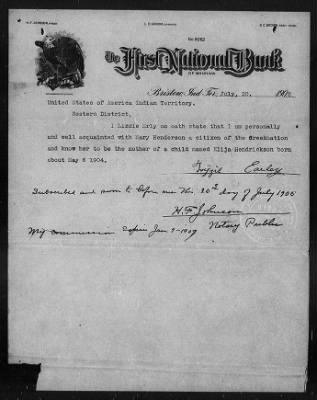 No 6062
The First National Bank
OF BRISTOW
Bristow, Ind. Ter. July, 20. 190
United States of America Indian Territory.
Western District,
I Lizzie Erly on oath state that I am personally
and well acquainted with Mary Henderson a citizen of the Creek Nation
and know her to be the mother of a child named Elija Hendrickson born
about May 6 1904,
Earley
Subscribe and sworn to before me this 20th day of July 1905
H. F. Johnson
Notary Public
My commission Expires Jan 7-1909